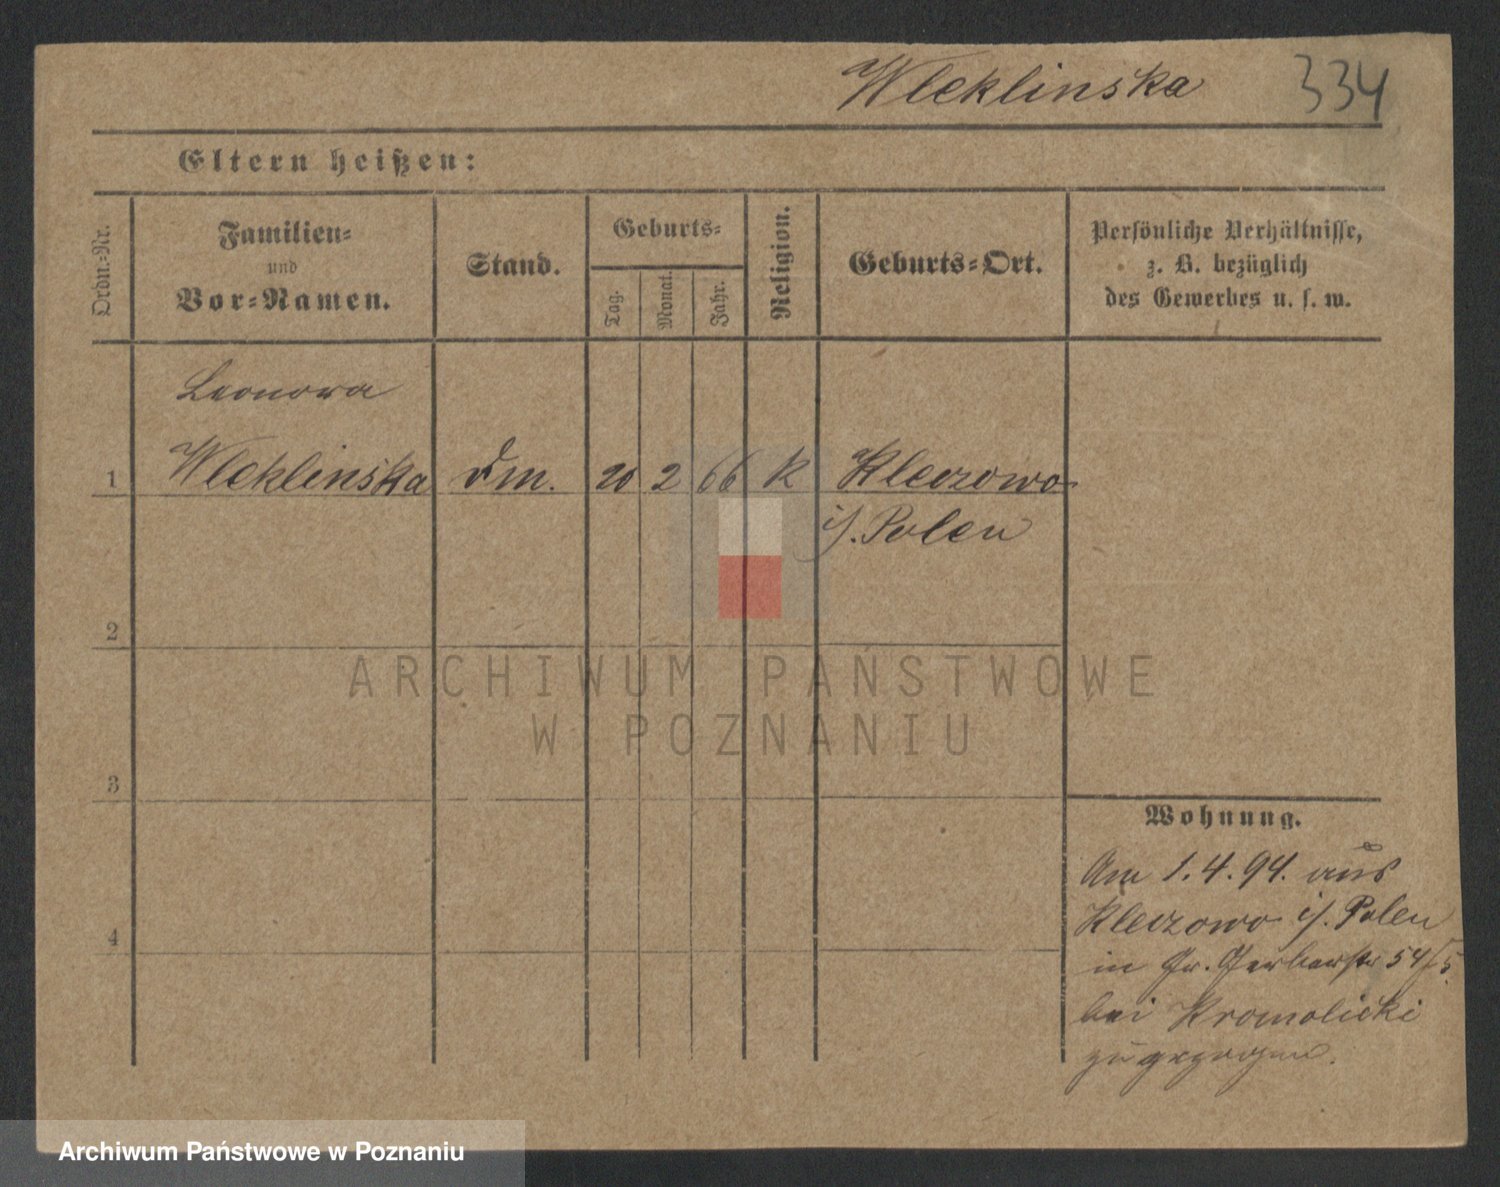 Wleklinska 334
Eltern heißen:
Ordn.-Nr.
Familien-
und
Vor-Namen.
Stand.
Geburts-
Tag.
Monat.
Jahr.
Religion.
Geburts-Ort.
Persönliche Verhältnisse,
z. B. bezüglich
des Gewerbes u. s. w.
Leonora
1 Wleklinska 20 2 66 K Kleczowo
i/. Polen
2
ARCHIWUM PAŃSTWOWE
W POZNANIU
3
Wohnung.
Am 1.4.94. aus
Kleczowo i/. Polen
4
in Gr. Gerberstr 54/5
bei Kromolicki
zugezogen.
Archiwum Państwowe w Poznaniu